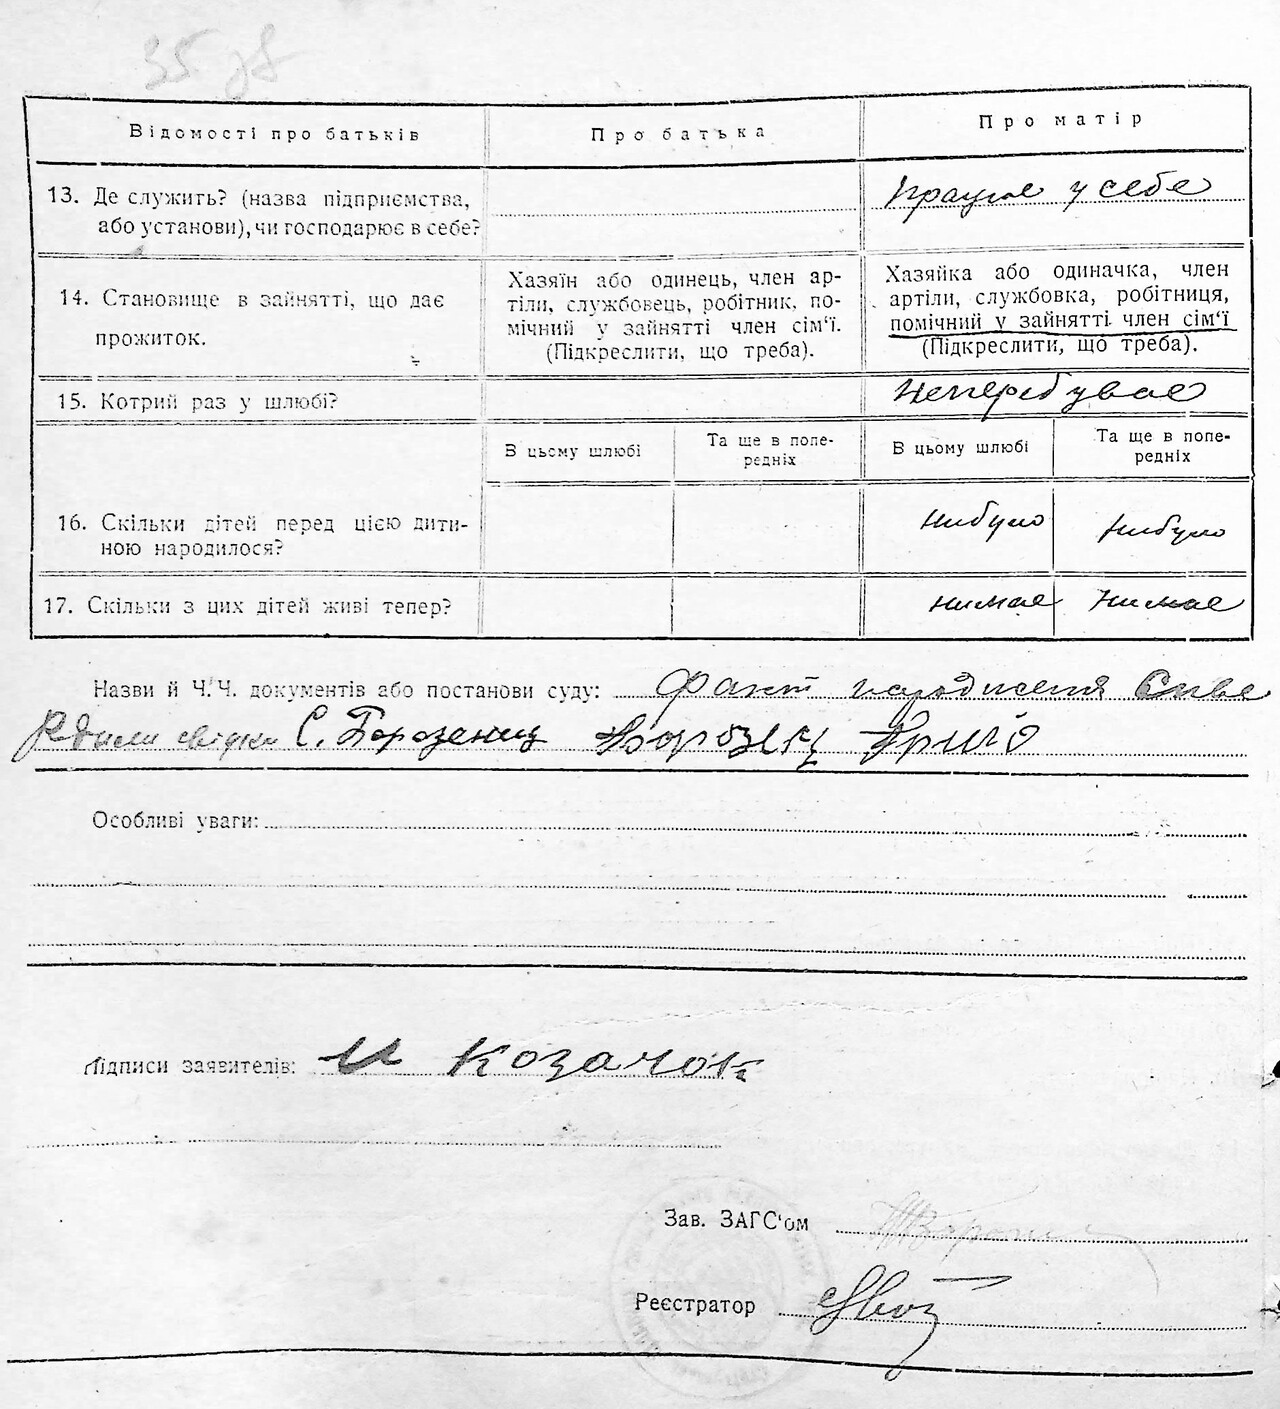 35
Відомості про батьків
Про батька
Про матір
13. Де служить? (назва підприємства,
або установи), чи господарює в себе?
працює у себе
14. Становище в зайнятті, що дає
прожиток.
Хазяїн або одинець, член ар-
тілі, службовець, робітник, по-
мічний у зайнятті член сім‘ї.
(Підкреслити, що треба).
Хазяйка або одиначка, член
артілі, службовка, робітниця,
помічний у зайнятті член сім‘ї
(Підкреслити, що треба).
15. Котрий раз у шлюбі?
неперебуває
В цьому шлюбі
Та ще в попе-
редніх
В цьому шлюбі
Та ще в попе-
редніх
16. Скільки дітей перед цією дити-
ною народилося?
нибуло
нибуло
17. Скільки з цих дітей живі тепер?
нимає
нимає
Назви й Ч.Ч. документів або постанови суду: Факт народження
свідки С. Борозенец
Особливі уваги:
Підписи заявителів: И Козачок
Зав. ЗАГС‘ом
Реєстратор